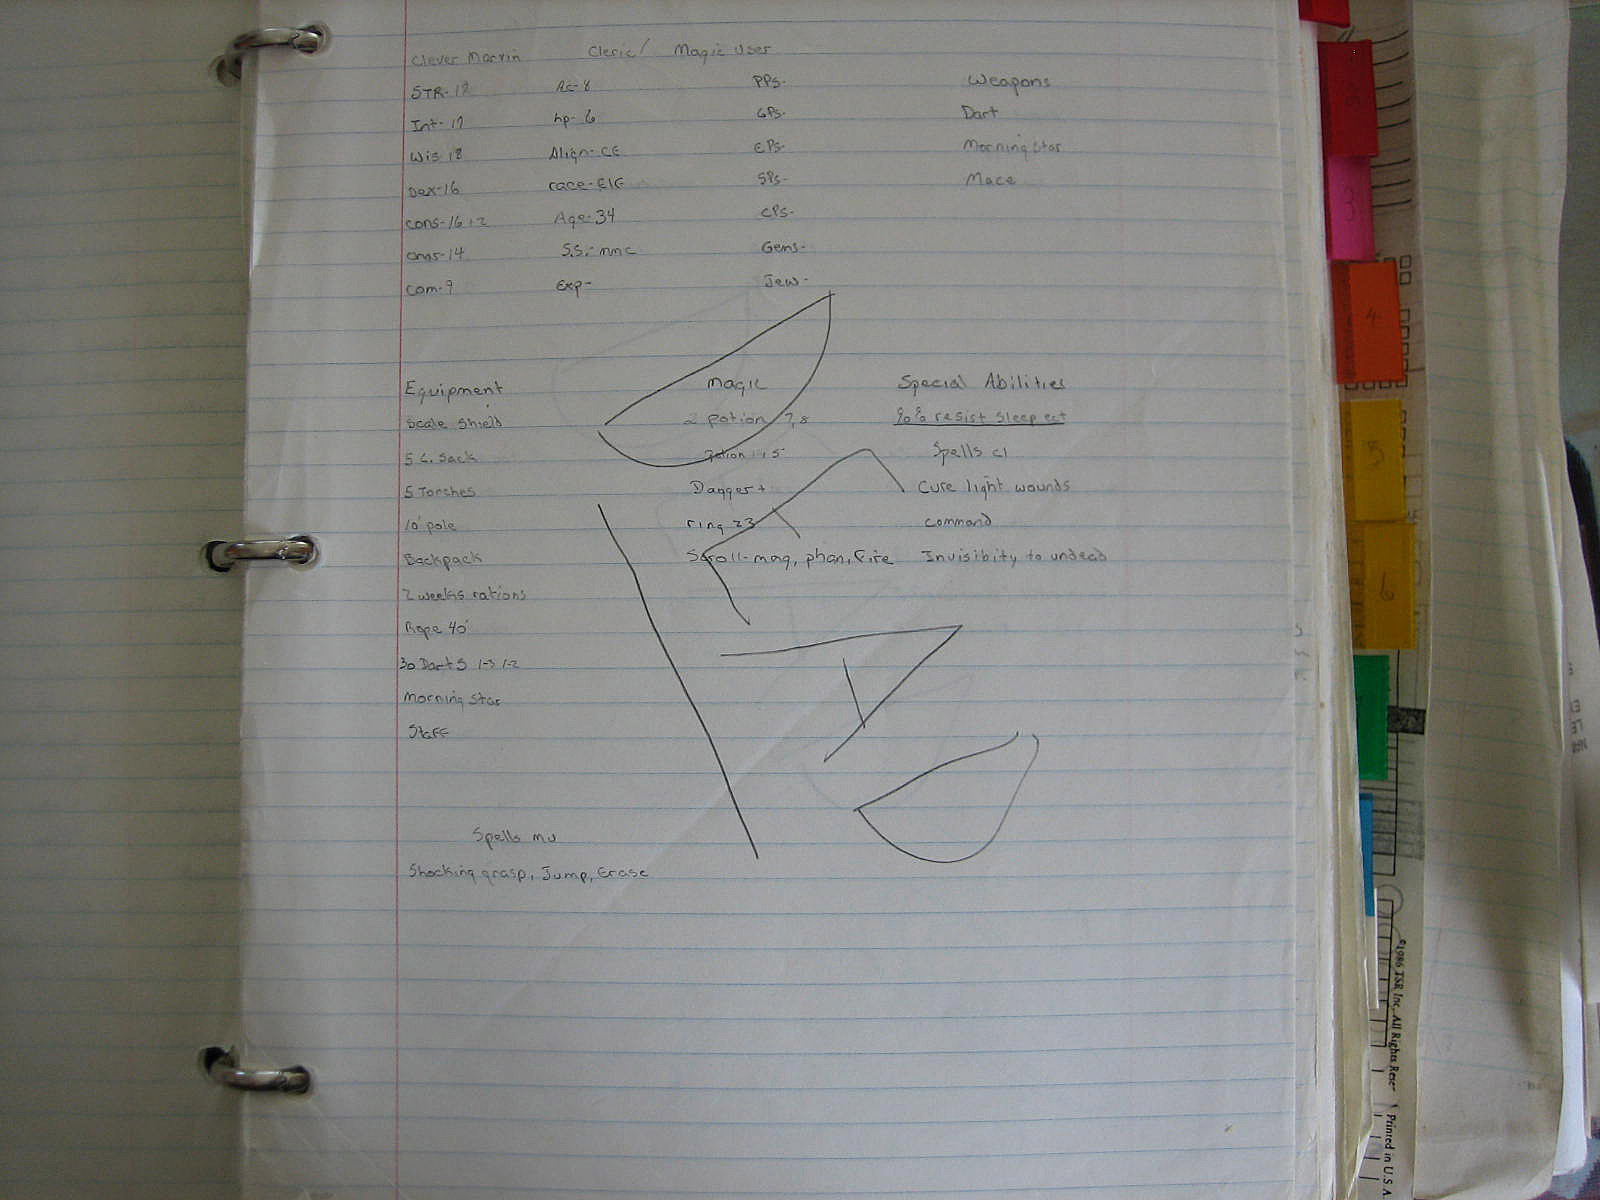 Clever Marvin Cleric/ Magic User
STR-18 Ac-8 PPs- Weapons
Int-17 hp-6 GPs- Dart
Wis-18 Align-CE EPs- Morning Star
Dex-16 race-Elf SPs- Mace
Cons-16+2 Age-34 CPs-
Chas-14 S.S.- Gems-
Com-9 Exp- Jew-
Equipment Magic Special Abilities
Scale Shield 2 Potion 7,8 resist sleep ect
Sack Spells cl
5 Torches Dagger+ Cure light wounds
10' pole ring 23 command
Backpack Scroll-mag, phan, fire Invisibity to undead
2 weeks rations
Rope 40'
30 Darts 1-3 1-2
Morning Star
Staff
DEAD
Spells mu
Shocking grasp, Jump, Erase
3
4
5
6
©1986 TSR Inc. All Rights Rese
Printed in U.S.A